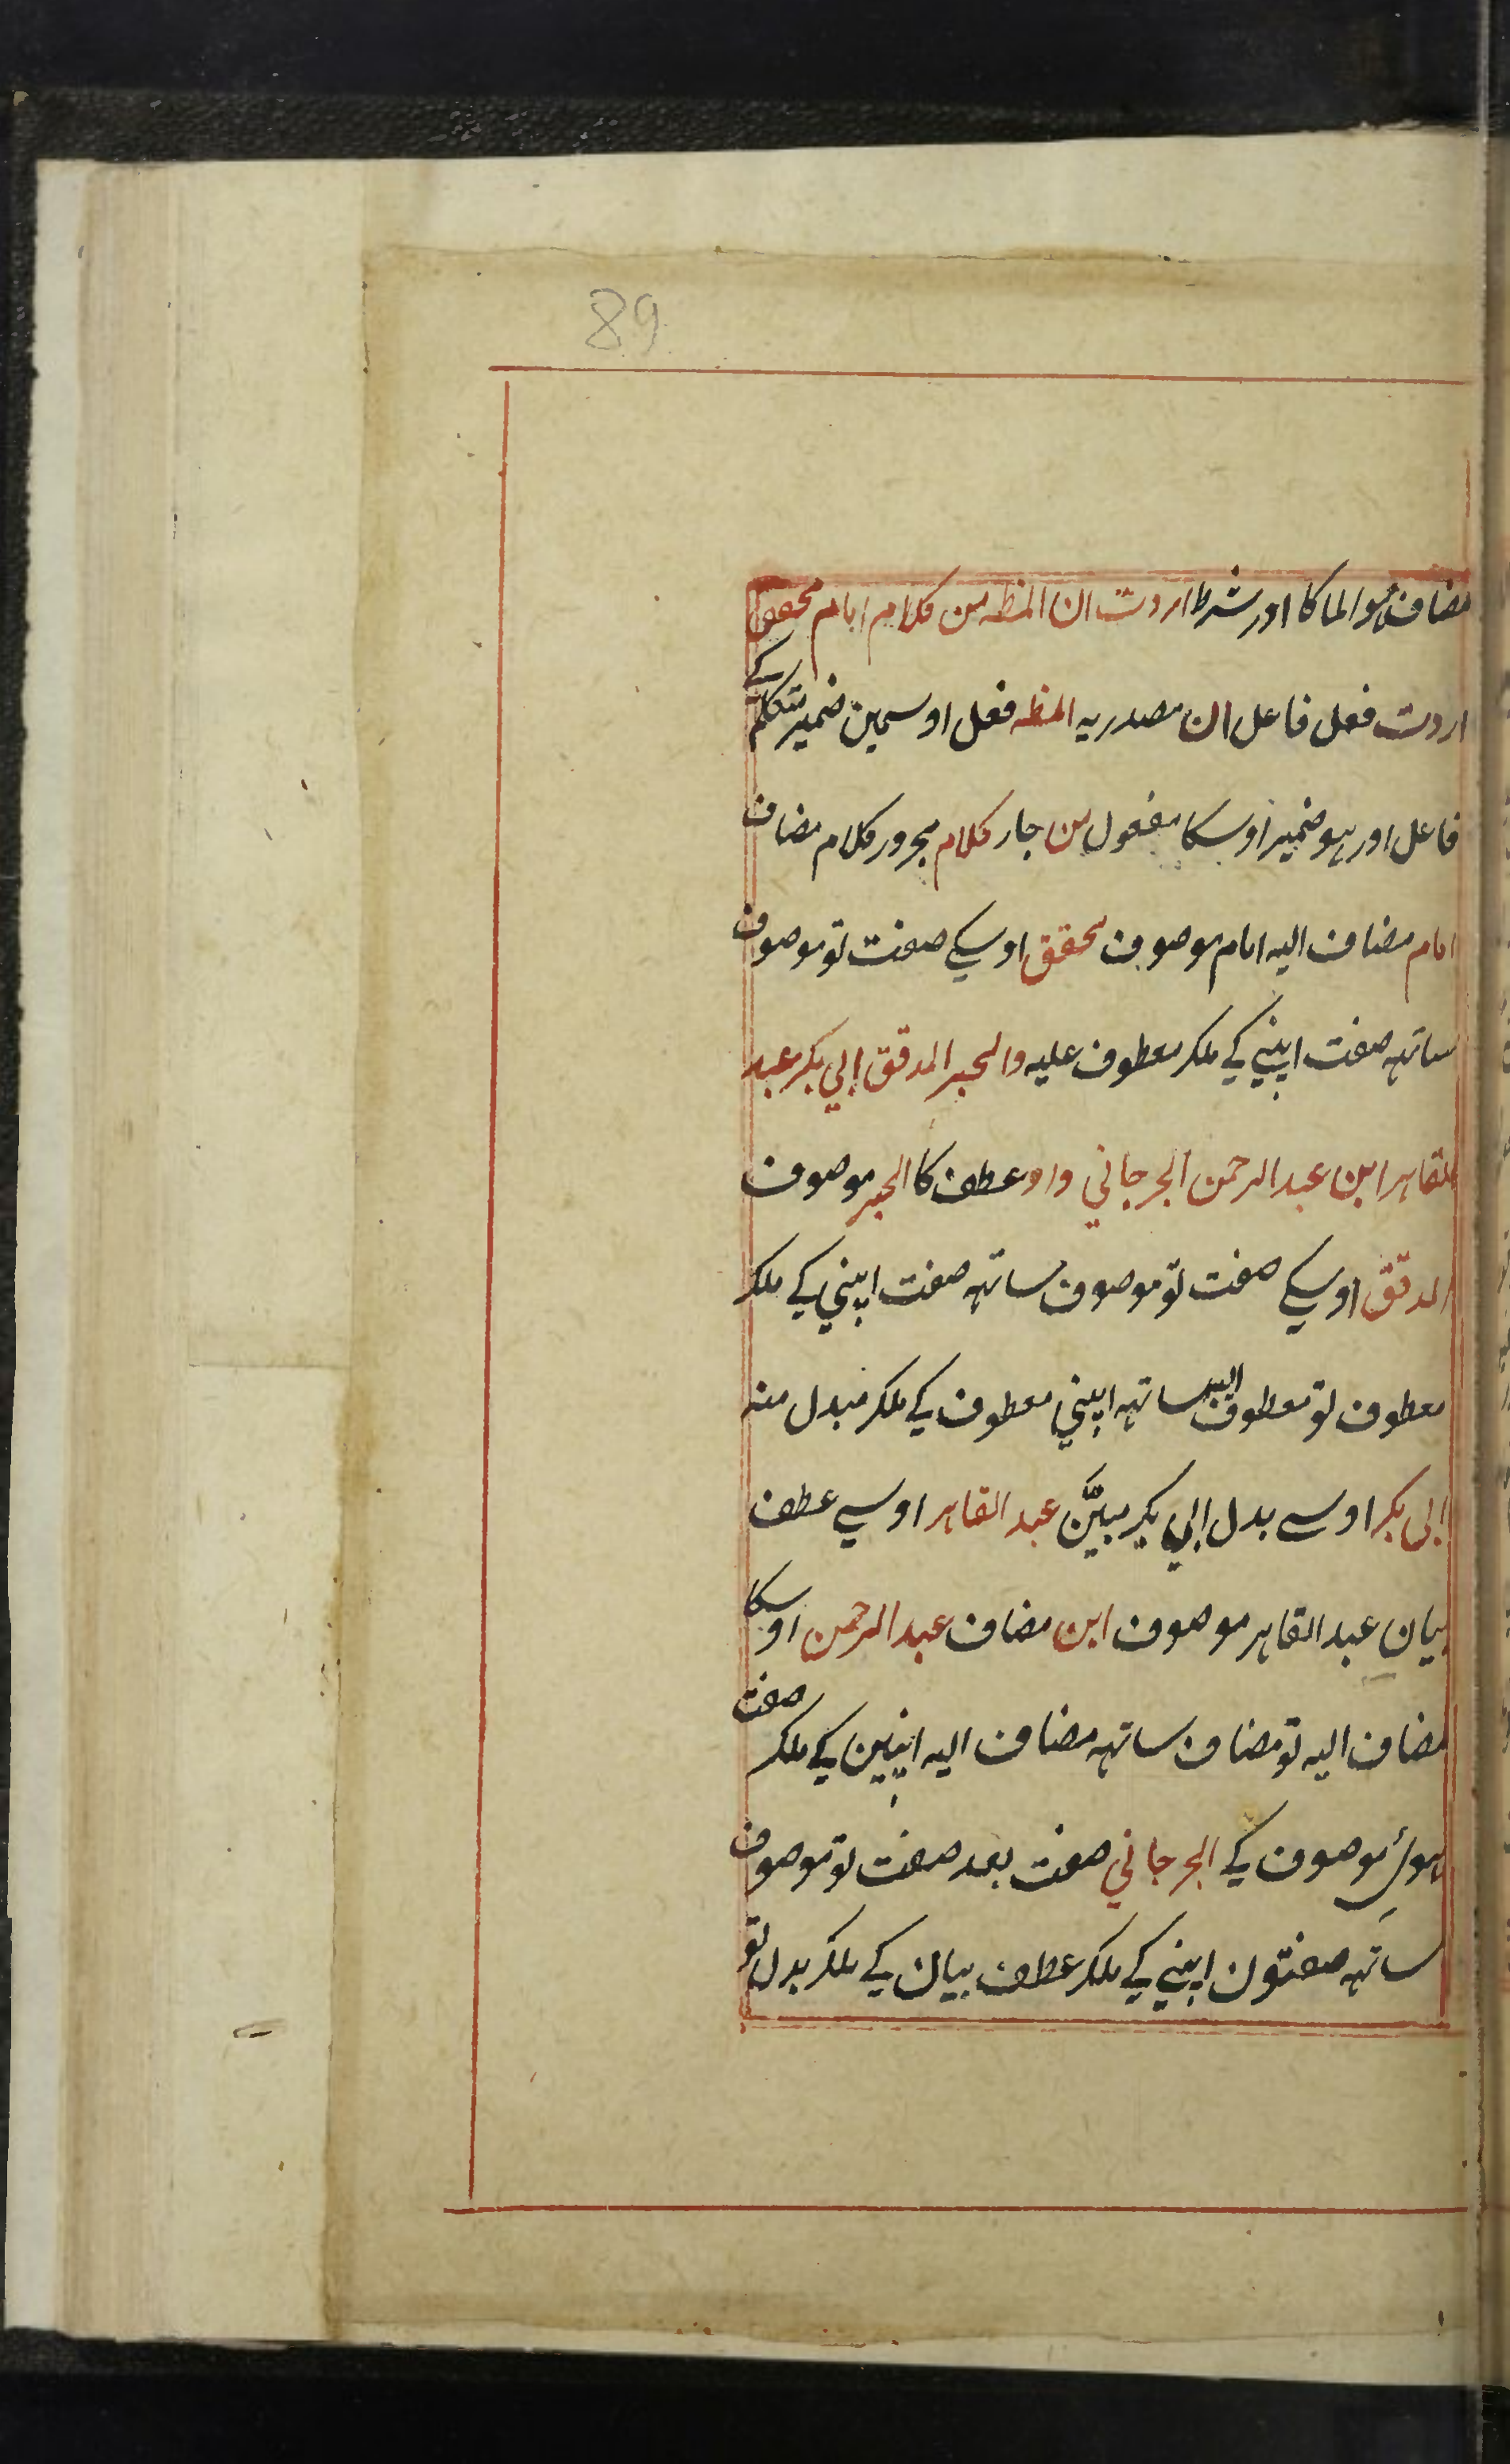 89
مضاف ہوا لما کا اور شرط اردت ان المظہ من کلام امام محقق
اردت فعل فاعل ان مصدریہ المظہ فعل اوسمین ضمیر متکلم کے
فاعل اور ہو ضمیر اوسکا مفعول من جار کلام مجرور کلام مضاف
امام مضاف الیہ امام موصوف محقق اوسکے صفت تو موصوف
ساتہہ صفت اپنی کے ملکر معطوف علیہ والحبر المدقق ابی بکر عبد
القاہر ابن عبد الرحمن الجرجانی واو عطف کا الحبر موصوف
المدقق اوسکے صفت تو موصوف ساتہہ صفت اپنی کے ملکر
معطوف تو معطوف الیہ ساتہہ اپنی معطوف کے ملکر مبدل منہ
ابی بکر اوسے بدل ابی بکر مبیَّن عبد القاہر اوسے عطف
بیان عبد القاہر موصوف ابن مضاف عبد الرحمن اوسکا
مضاف الیہ تو مضاف ساتہہ مضاف الیہ اپنین کے ملکر صفت
ہوئ موصوف کے الجرجانی صفت بعد صفت تو موصوف
ساتہہ صفتون اپنی کے ملکر عطف بیان کے ملکر بدل تو